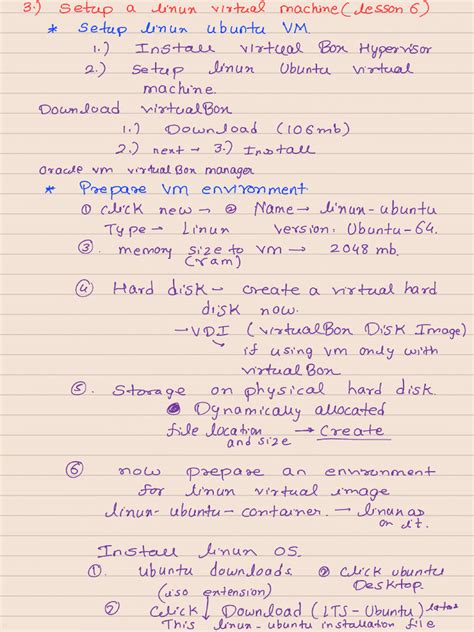 3.) Setup a linux virtual machine (lesson 6)
* Setup linux ubuntu VM
1.) Install virtual Box Hypervisor
2.) Setup linux Ubuntu virtual
machine.
Download virtualBox
1.) Download (106mb)
2.) next → 3.) Install
Oracle vm virtual Box manager
* Prepare vm environment
① click new → ② Name → linux-ubuntu
Type → Linux version: Ubuntu-64.
③. memory size to vm → 2048 mb.
(ram)
④ Hard disk → create a virtual hard
disk now.
→ VDI (virtualBox Disk Image)
if using vm only with
virtual Box
⑤. Storage on physical hard disk.
Dynamically allocated
file location → Create
and size
⑥ now prepare an environment
for linux virtual image
linux-ubuntu-container. → linux as
on it.
Install linux OS.
①. ubuntu downloads ② click ubuntu
(iso extension) Desktop.
Click Download (LTS-Ubuntu) latest
This linux-ubuntu installation file